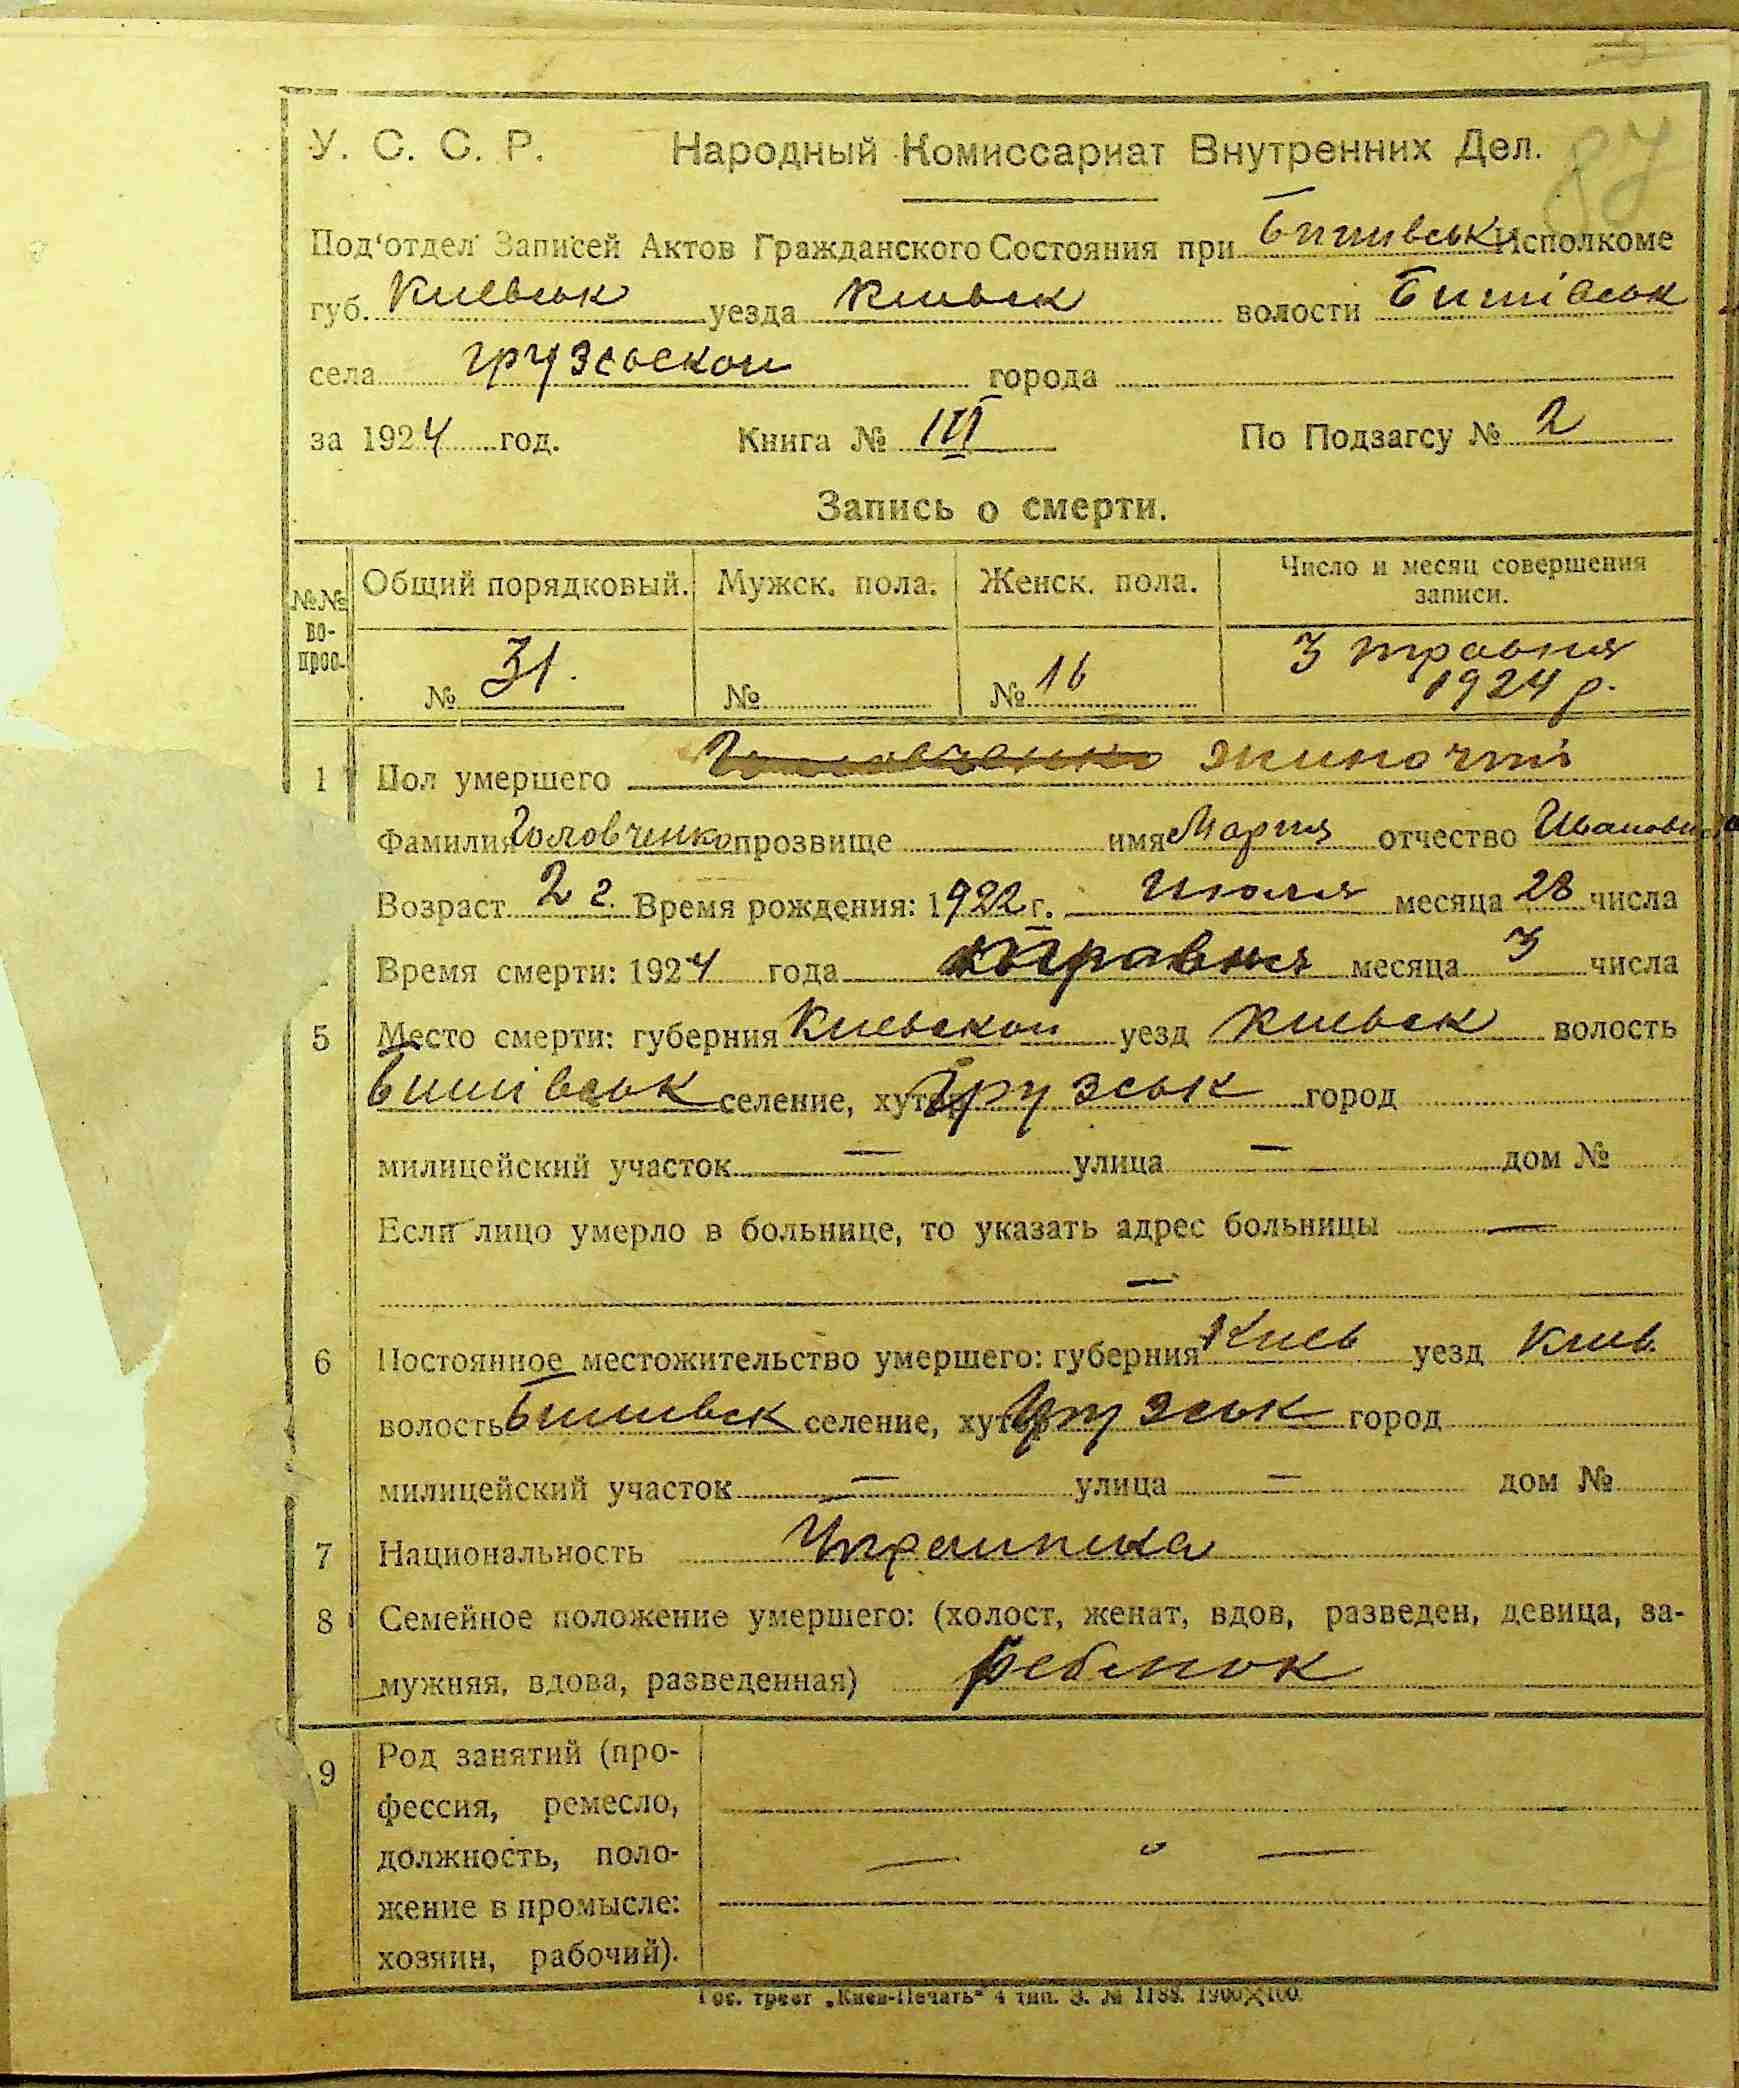 87
У. С. С. Р. Народный Комиссариат Внутренних Дел.
Под'отдел Записей Актов Гражданского Состояния при Бишивськ Исполкоме
губ. Киевськ уезда Киевск волости Бишівськ
села Грузськой города
за 1924 год. Книга № III По Подзагсу № 2
Запись о смерти.
№№ во- прос. Общий порядковый. Мужск. пола. Женск. пола. Число и месяц совершения записи.
№ 31. № № 16 3 травня 1924 р.
1 Пол умершего Головченко жиночий
Фамилия Головченко прозвище имя Мария отчество Ивановна
Возраст 2 г. Время рождения: 1922 г. Июля месяца 28 числа
Время смерти: 1924 года травня месяца 3 числа
5 Место смерти: губерния Киевской уезд Киевск волость
Бишівськ селение, хутор Грузськ город
милицейский участок — улица — дом №
Если лицо умерло в больнице, то указать адрес больницы —
—
6 Постоянное местожительство умершего: губерния Киев уезд Киев.
волость Бишивск селение, хутор Грузськ город
милицейский участок — улица — дом №
7 Национальность Украинка
8 Семейное положение умершего: (холост, женат, вдов, разведен, девица, за-
мужняя, вдова, разведенная) ребенок
9 Род занятий (про-
фессия, ремесло,
должность, поло-
жение в промысле:
хозяин, рабочий).
Гос. трест „Киев-Печать" 4 тип. З. № 1188. 1900×100.